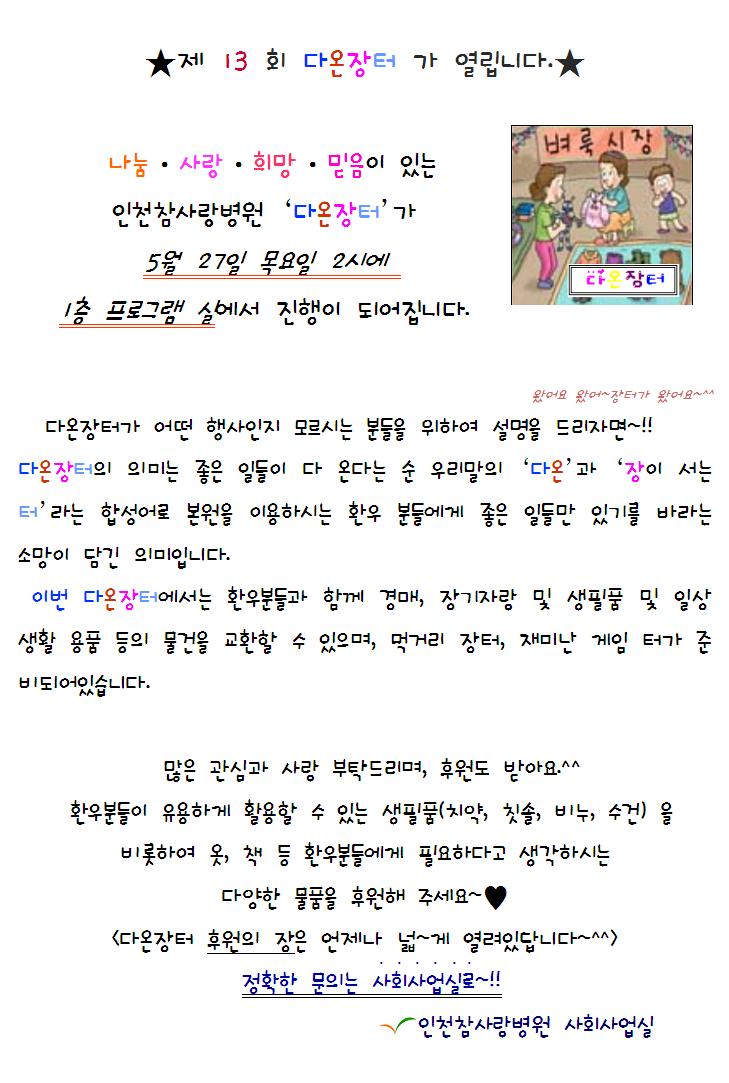 ★제 13 회 다온장터 가 열립니다.★
벼룩시장
다온장터
나눔 • 사랑 • 희망 • 믿음이 있는
인천참사랑병원 ‘다온장터’가
5월 27일 목요일 2시에
1층 프로그램 실에서 진행이 되어집니다.
왔어요 왔어~장터가 왔어요~^^
다온장터가 어떤 행사인지 모르시는 분들을 위하여 설명을 드리자면~!!
다온장터의 의미는 좋은 일들이 다 온다는 순 우리말의 ‘다온’과 ‘장이 서는
터’라는 합성어로 본원을 이용하시는 환우 분들에게 좋은 일들만 있기를 바라는
소망이 담긴 의미입니다.
이번 다온장터에서는 환우분들과 함께 경매, 장기자랑 및 생필품 및 일상
생활 용품 등의 물건을 교환할 수 있으며, 먹거리 장터, 재미난 게임 터가 준
비되어있습니다.
많은 관심과 사랑 부탁드리며, 후원도 받아요.^^
환우분들이 유용하게 활용할 수 있는 생필품(치약, 칫솔, 비누, 수건) 을
비롯하여 옷, 책 등 환우분들에게 필요하다고 생각하시는
다양한 물품을 후원해 주세요~♥
<다온장터 후원의 장은 언제나 넓~게 열려있답니다~^^>
정확한 문의는 사회사업실로~!!
인천참사랑병원 사회사업실